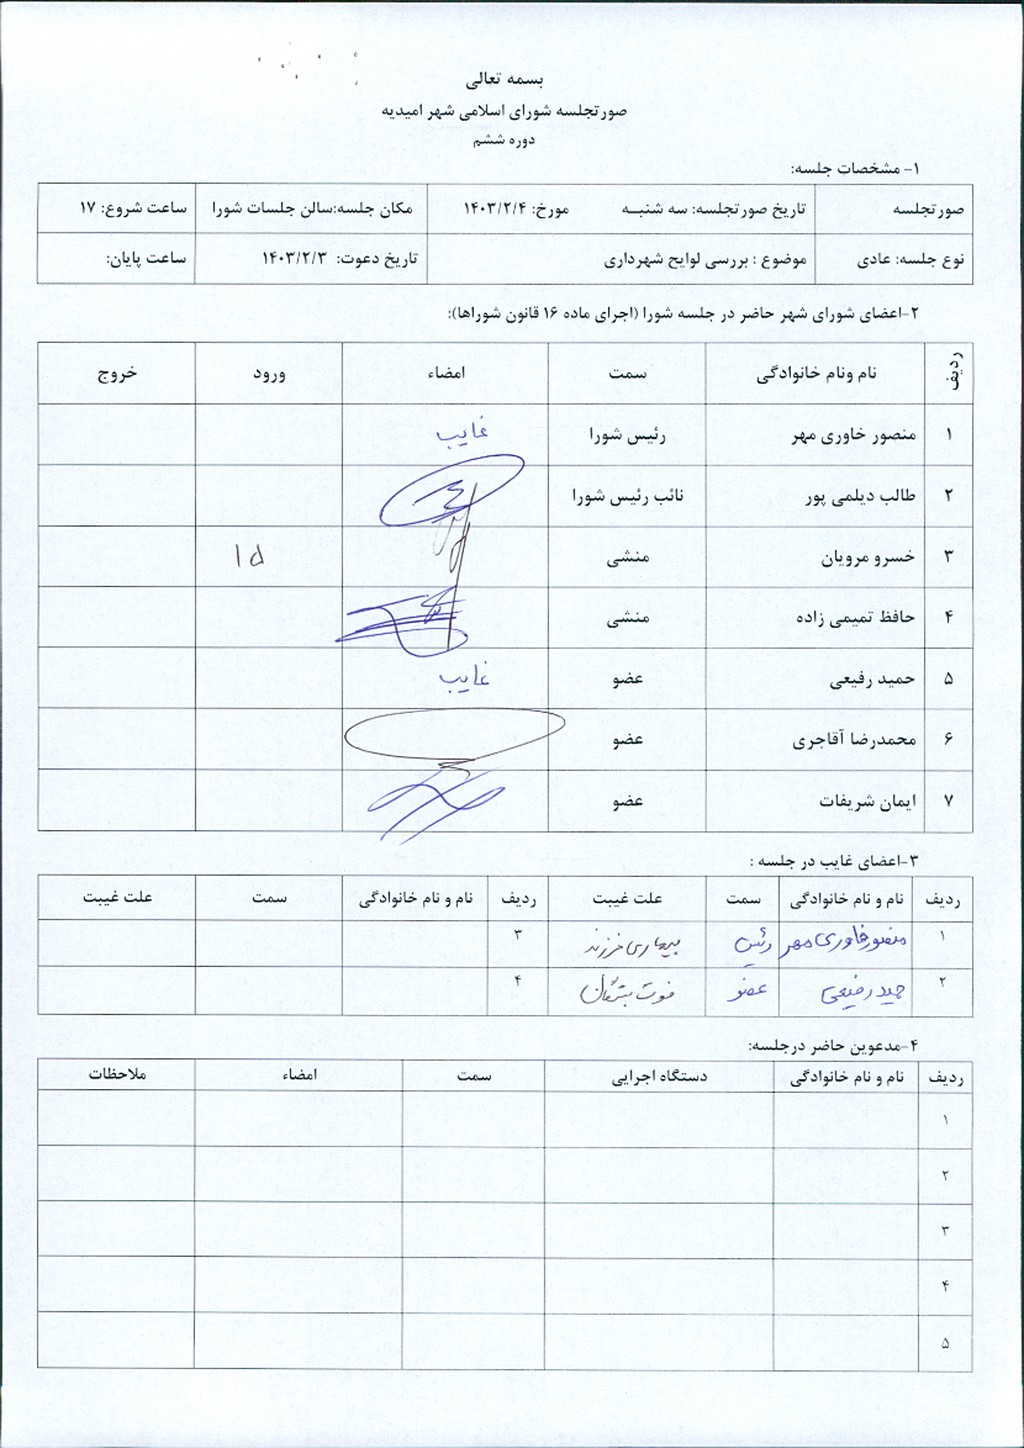 بسمه تعالی
صورتجلسه شورای اسلامی شهر امیدیه
دوره ششم
۱- مشخصات جلسه:
صورتجلسه تاریخ صورتجلسه: سه شنبـه مورخ: ۱۴۰۳/۲/۴ مکان جلسه:سالن جلسات شورا ساعت شروع: ۱۷
نوع جلسه: عادی موضوع : بررسی لوایح شهرداری تاریخ دعوت: ۱۴۰۳/۲/۳ ساعت پایان:
۲-اعضای شورای شهر حاضر در جلسه شورا (اجرای ماده ۱۶ قانون شوراها):
ردیف نام ونام خانوادگی سمت امضاء ورود خروج
۱ منصور خاوری مهر رئیس شورا غایب
۲ طالب دیلمی پور نائب رئیس شورا
۳ خسرو مرویان منشی
۴ حافظ تمیمی زاده منشی
۵ حمید رفیعی عضو غایب
۶ محمدرضا آقاجری عضو
۷ ایمان شریفات عضو
۳-اعضای غایب در جلسه :
ردیف نام و نام خانوادگی سمت علت غیبت ردیف نام و نام خانوادگی سمت علت غیبت
۱ منصور خاوری مهر رئیس بیماری فرزند ۳
۲ حمید رفیعی عضو فوت بستگان ۴
۴-مدعوین حاضر درجلسه:
ردیف نام و نام خانوادگی دستگاه اجرایی سمت امضاء ملاحظات
۱
۲
۳
۴
۵